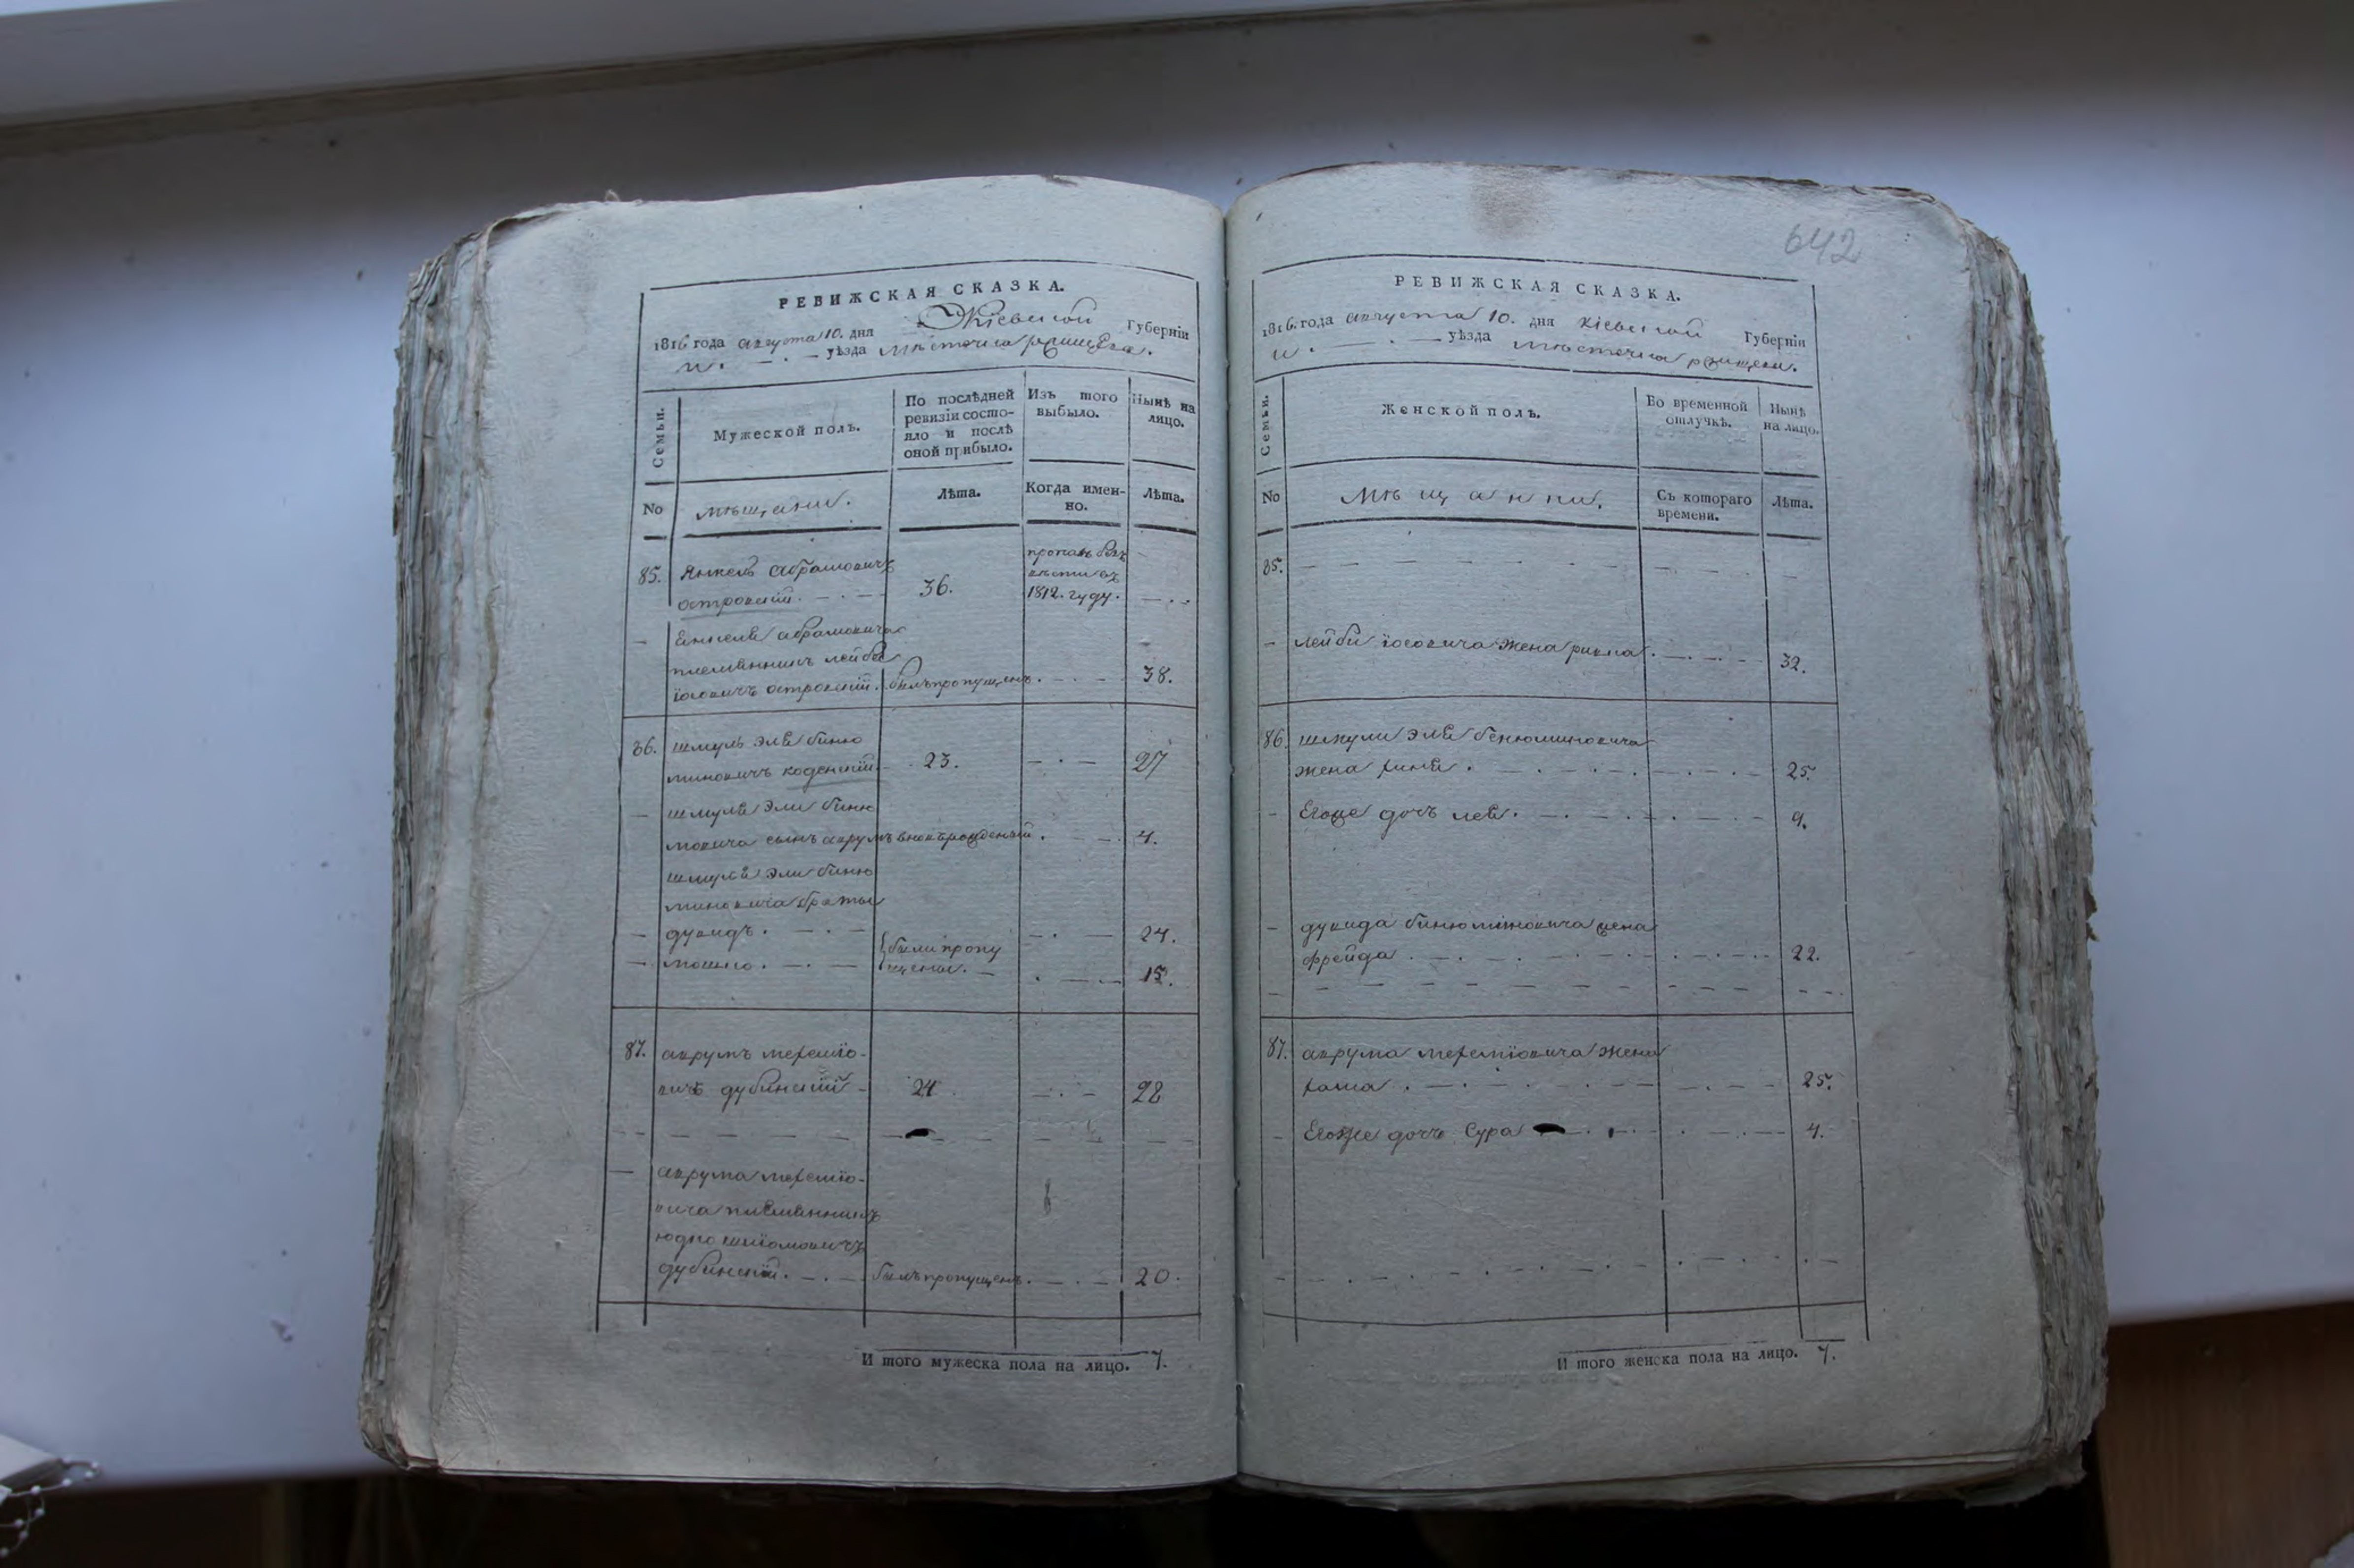 РЕВИЖСКАЯ СКАЗКА.
1816 года августа 10. дня Кіевской Губерніи
и. — . — уѣзда мѣстечка ржищева.
Семьи.
Мужеской полъ.
По послѣдней ревизіи состояло и послѣ оной прибыло.
Изъ того выбыло.
Нынѣ на лицо.
No
мѣщани.
Лѣта.
Когда именно.
Лѣта.
85. Янкель абрамовичъ
островскій. 36. пропалъ безъ вѣсти въ 1812. году.
— Янкеля абрамовича
племянникъ лейба
іосовичъ островскій. былъ пропущенъ. 38.
86. шмуль эля биню
миновичъ коденскій. 23. — . — 27
— шмуля эли биню
мовича сынъ аврумъ вновьрожденій. 4.
шмуля эли биню
миновича братья
— дувидъ. — . — были пропу — . — 24.
— мошко. — . — щены. — . — 15.
87. аврумъ мехеліо-
вичъ дубинскій 24 — . — 28
— аврума мехеліо-
вича племянникъ
юдко шліомовичъ
дубинскій. — . — былъ пропущенъ. — . — 20.
И того мужеска пола на лицо. 7.
642
РЕВИЖСКАЯ СКАЗКА.
1816. года августа 10. дня кіевской Губерніи
и. — . — уѣзда мѣстечка ржищева.
Семьи.
Женской полъ.
Во временной отлучкѣ.
Нынѣ на лицо.
No
мѣщанки.
Съ котораго времени.
Лѣта.
85. — — — —
— лейби іосовича жена ривка. 32.
86. шмули эля бенюминовича
жена хиня. 25.
— Егоже дочъ лея. 9.
— дувида бинюминовича жена
фрейда. 22.
87. аврума мехеліовича жена
хаша. 25.
— Егоже дочъ Сура 4.
И того женска пола на лицо. 7.